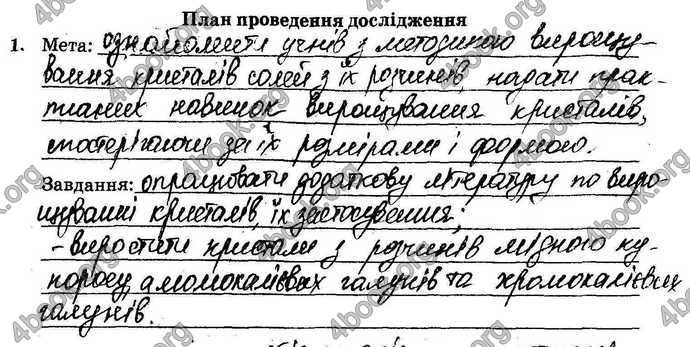 План проведення дослідження
1. Мета: ознайомити учнів з методикою вирощу-
вання кристалів солей з їх розчинів, надати прак-
тичних навичок вирощування кристалів,
спостерігаючи за їх розмірами і формою.
Завдання: опрацювати додаткову літературу по виро-
щуванні кристалів, їх застосування;
- виростити кристали з розчинів мідного ку-
поросу, амомокалієвих галунів та хромокалієвих
галунів.